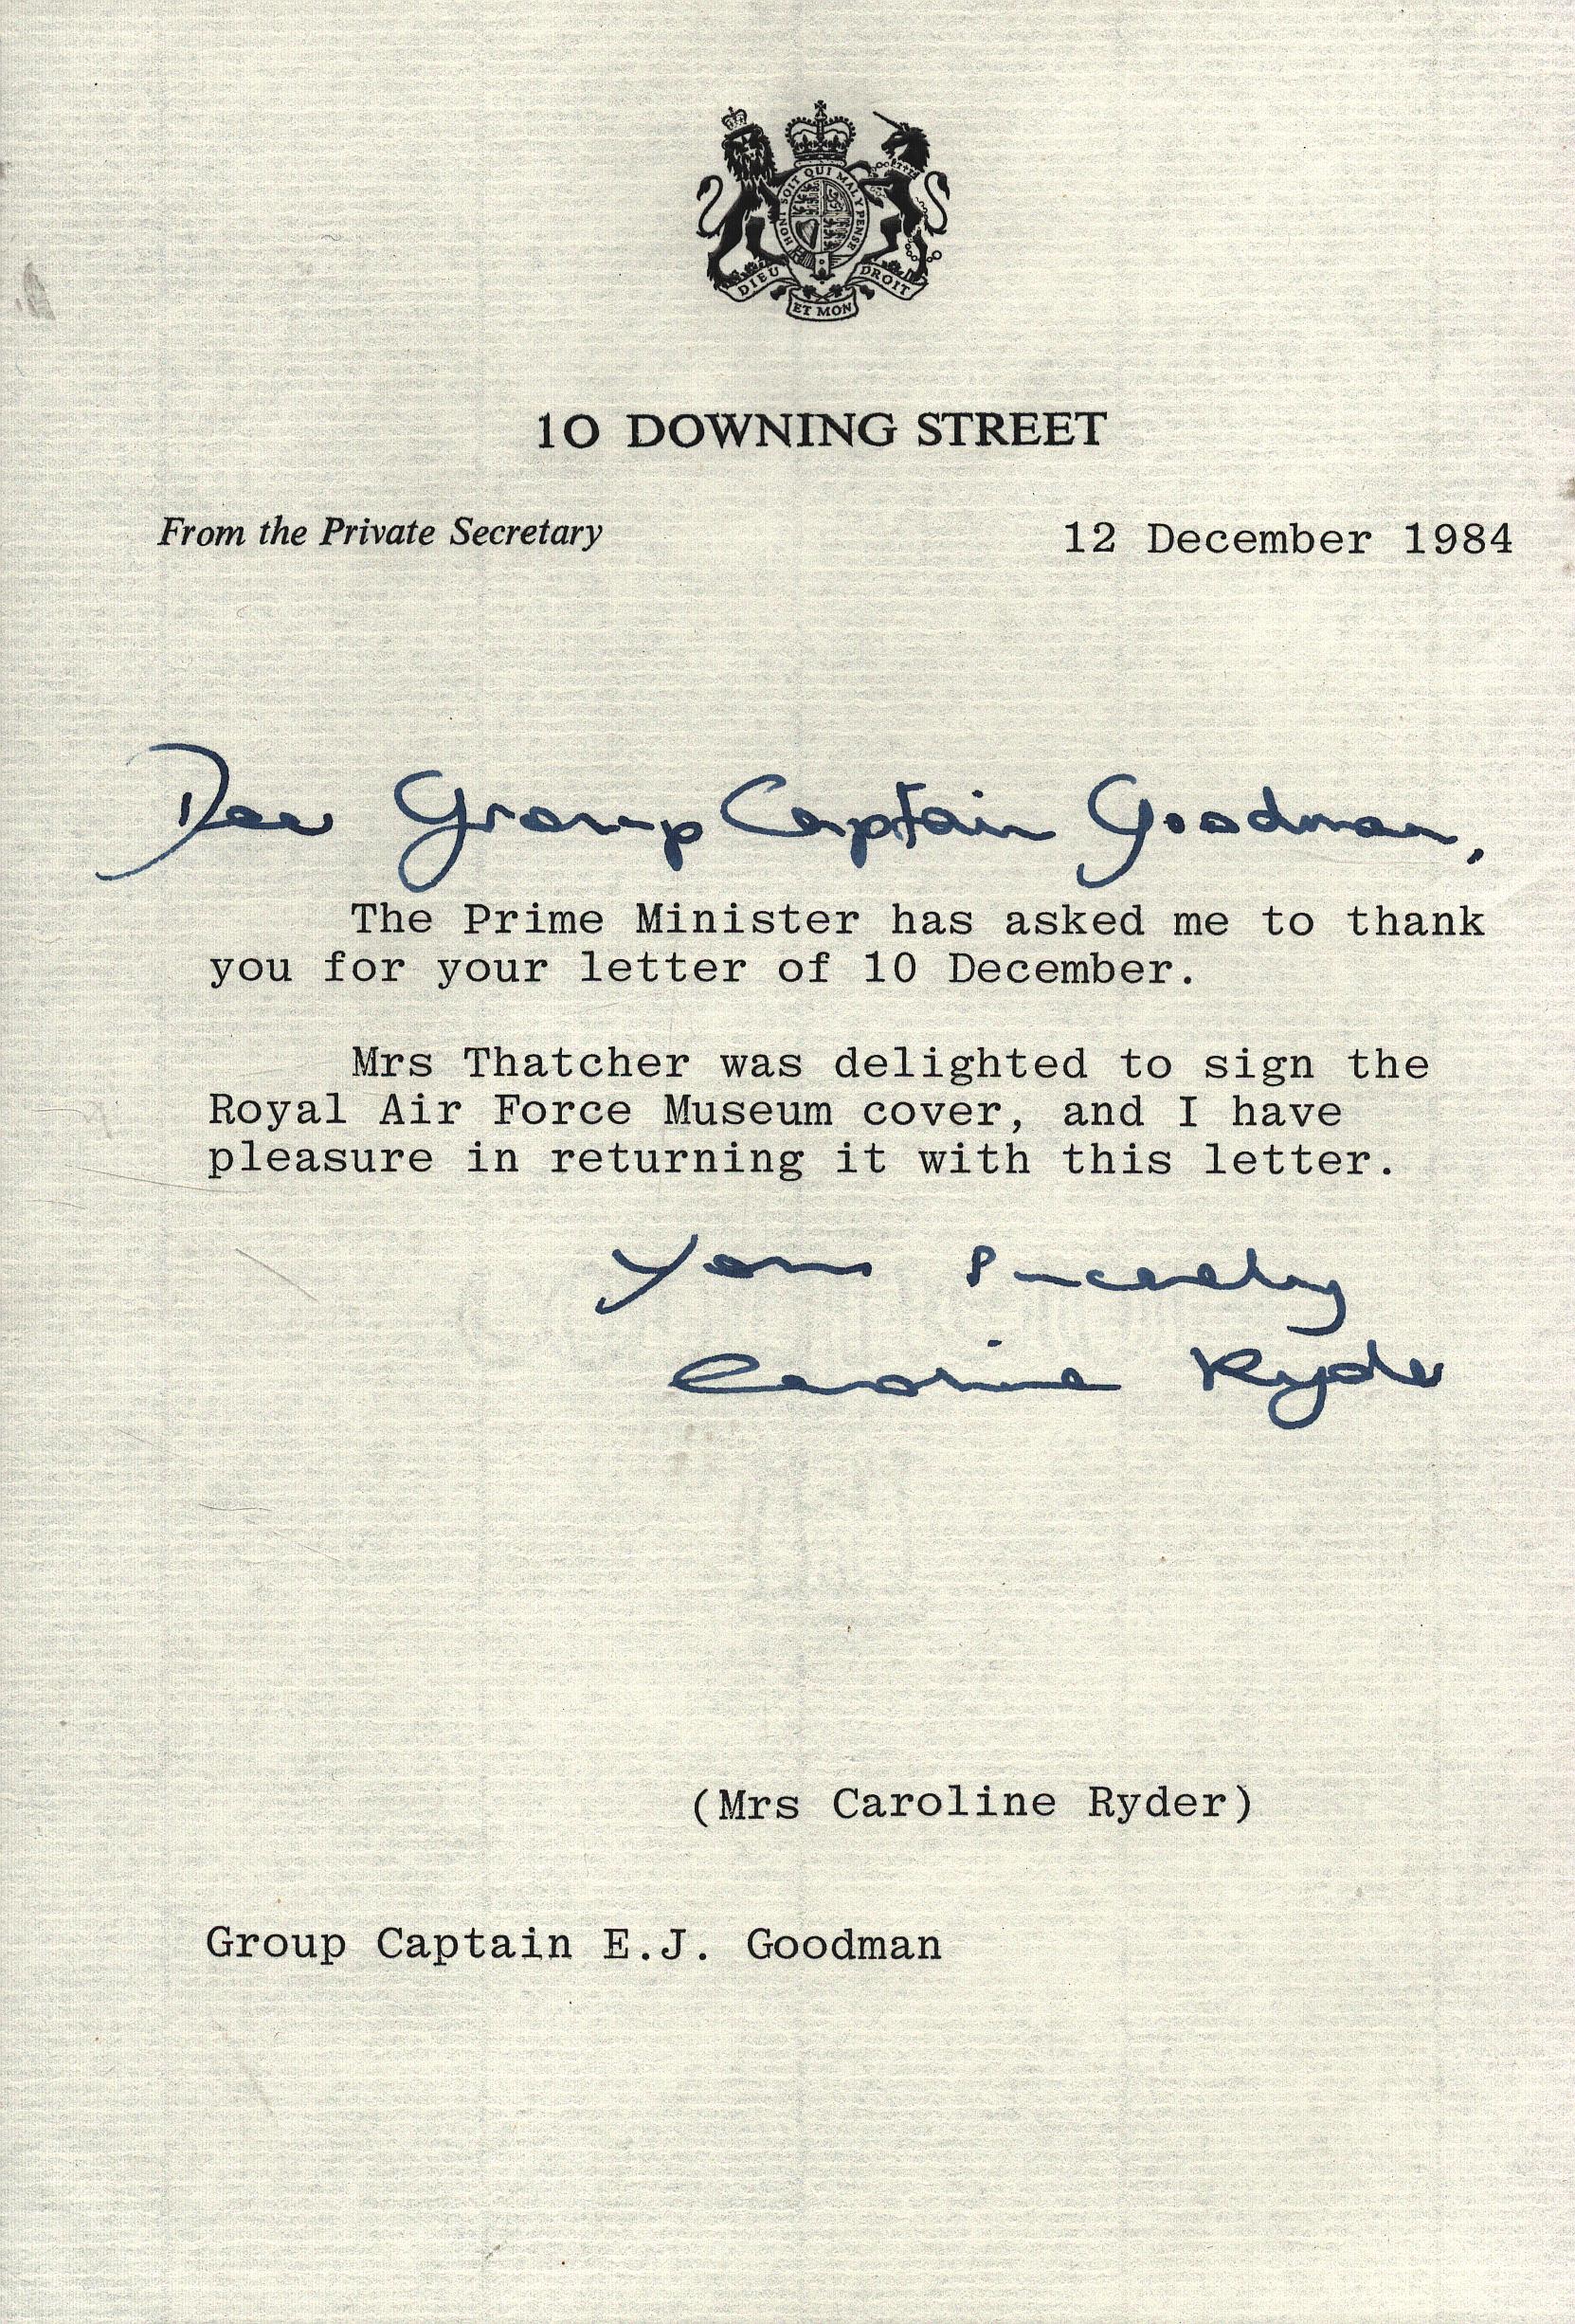 HONI SOIT QUI MAL Y PENSE
DIEU ET MON DROIT
10 DOWNING STREET
From the Private Secretary
12 December 1984
Dear Group Captain Goodman,
The Prime Minister has asked me to thank
you for your letter of 10 December.
Mrs Thatcher was delighted to sign the
Royal Air Force Museum cover, and I have
pleasure in returning it with this letter.
Yours sincerely
Caroline Ryder
(Mrs Caroline Ryder)
Group Captain E.J. Goodman